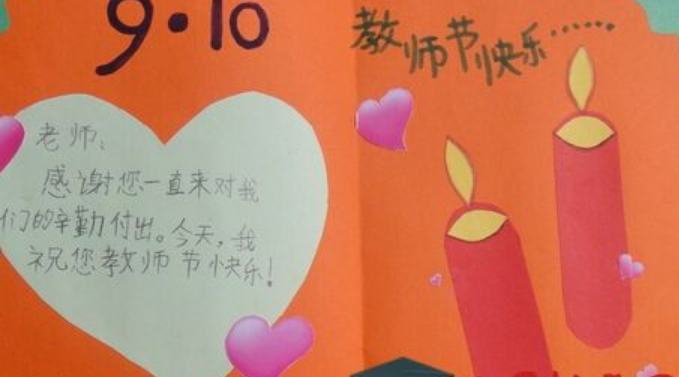 9·10
教师节快乐……
老师：
感谢您一直来对我
们的辛勤付出。今天，我
祝您教师节快乐！